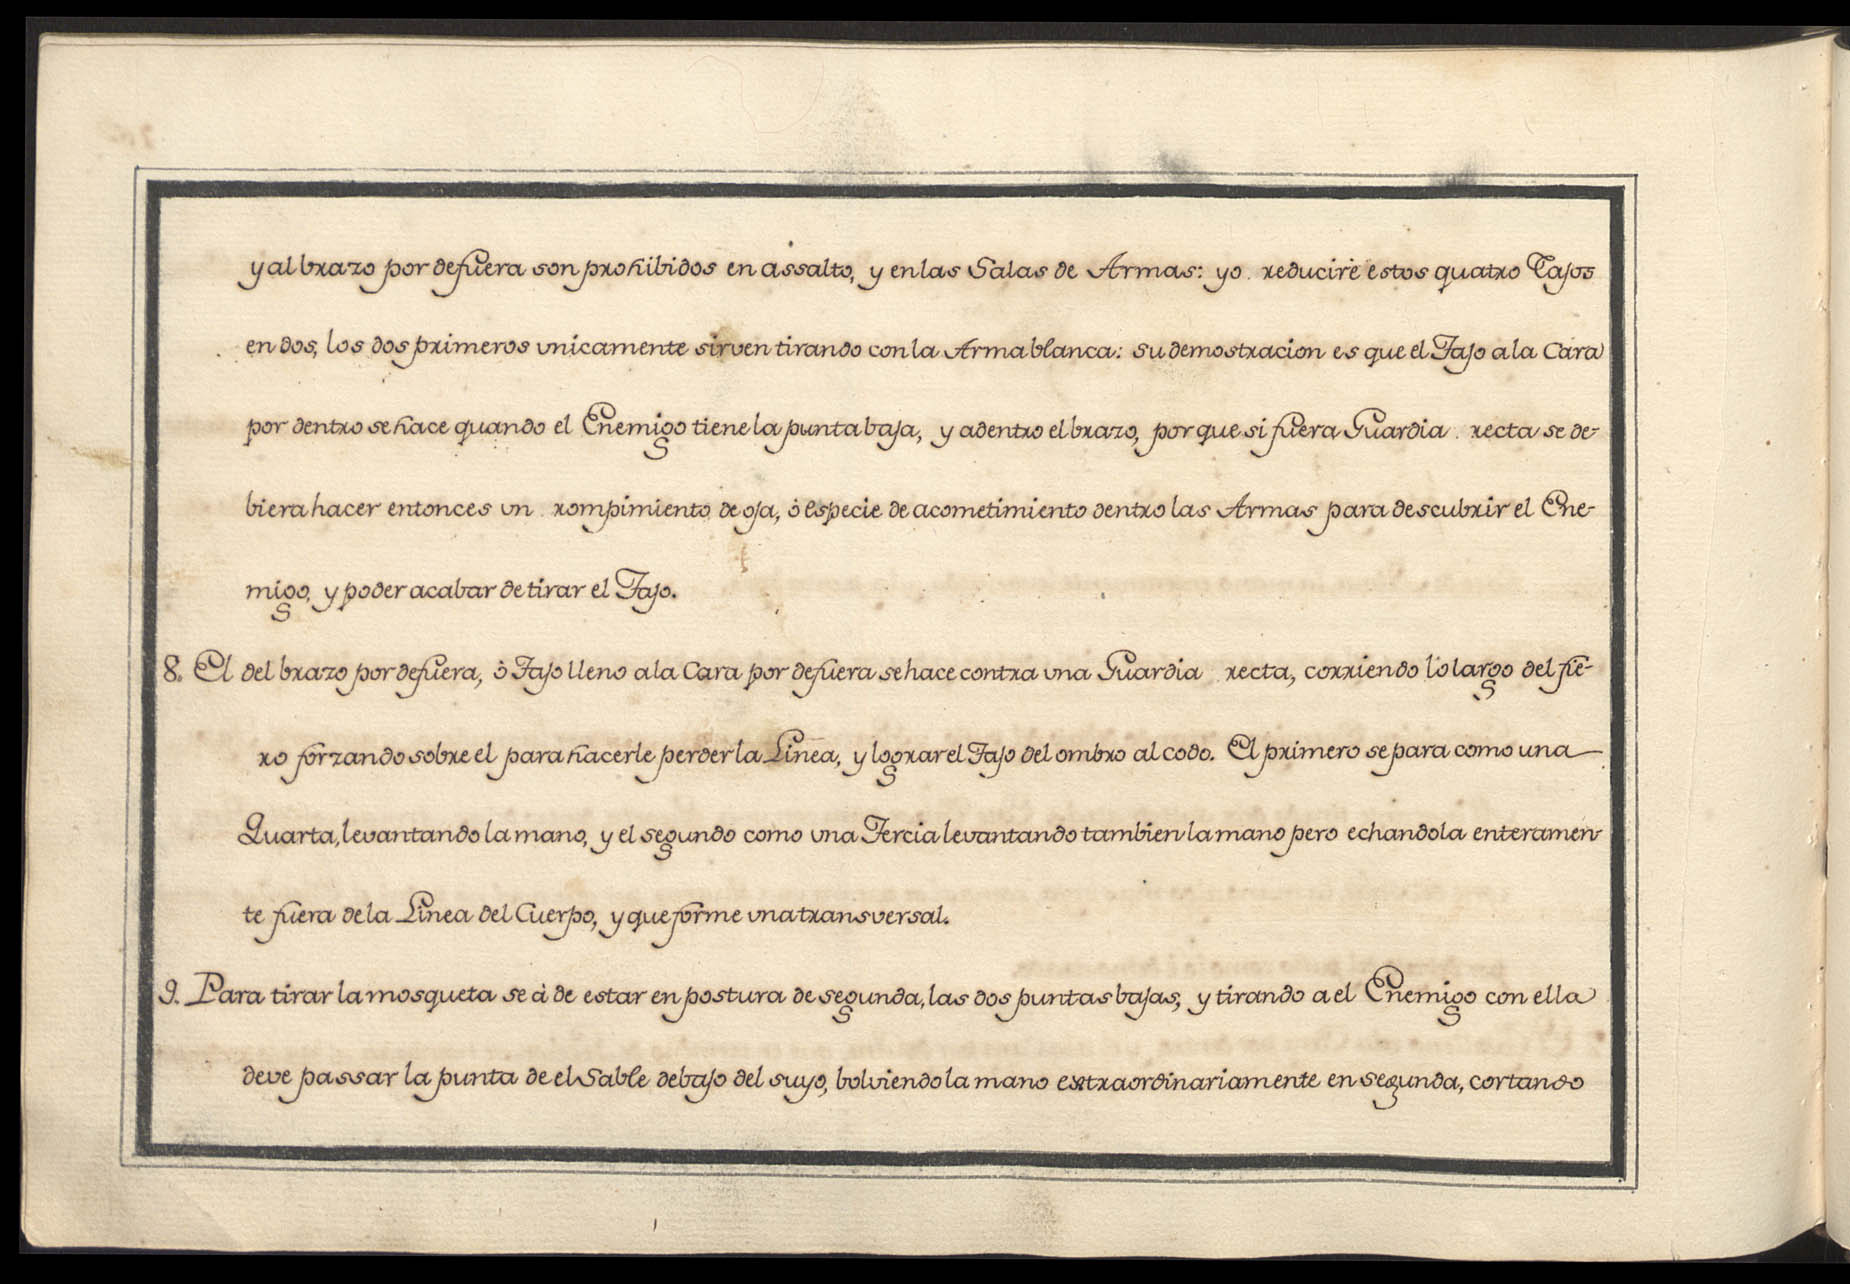 y al brazo por defuera son prohibidos en assalto, y en las Salas de Armas: yo reducirè estos quatro Tajos
en dos, los dos primeros vnicamente sirven tirando con la Arma blanca: su demostracion es que el Tajo a la Cara
por dentro se hace quando el Enemigo tiene la punta baja, y adentro el brazo, por que si fuera Guardia recta se de-
biera hacer entonces vn rompimiento de oja, ò especie de acometimiento dentro las Armas para descubrir el Ene-
migo, y poder acabar de tirar el Tajo.
8. El del brazo por defuera, ò Tajo lleno a la Cara por defuera se hace contra vna Guardia recta, corriendo lo largo del fie-
ro forzando sobre el para hacerle perder la Linea, y lograr el Tajo del ombro al codo. El primero se para como una
Quarta, levantando la mano, y el segundo como vna Tercia levantando tambien la mano pero echandola enteramen-
te fuera de la Linea del Cuerpo, y que forme vna transversal.
9. Para tirar la mosqueta se à de estar en postura de segunda, las dos puntas bajas, y tirando a el Enemigo con ella
deve passar la punta de el Sable debajo del suyo, bolviendo la mano extraordinariamente en segunda, cortando